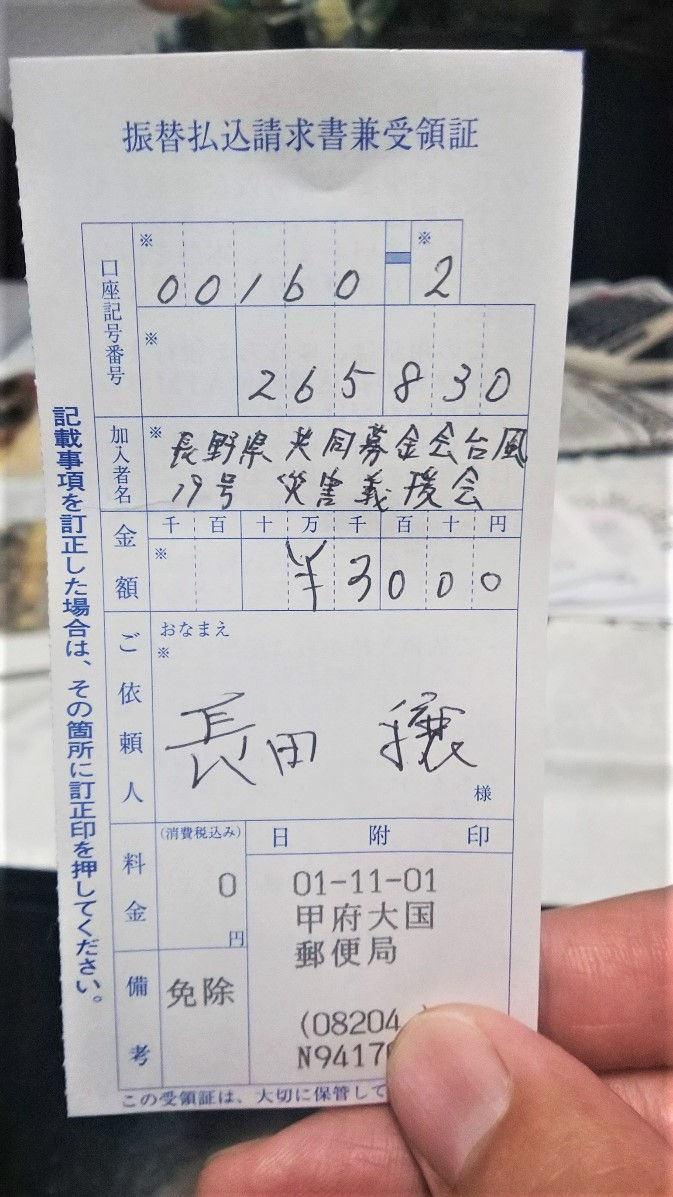 振替払込請求書兼受領証
口座記号番号
※ 00160-※ 2
※ 265830
加入者名
※ 長野県共同募金会台風
19号 災害義援会
金額
千 百 十 万 千 百 十 円
※ ¥3000
ご依頼人
おなまえ
※
長田 穣
様
料金
(消費税込み)
0
円
備考
免除
日附印
01-11-01
甲府大国
郵便局
(08204
N9417
この受領証は、大切に保管して
記載事項を訂正した場合は、その箇所に訂正印を押してください。